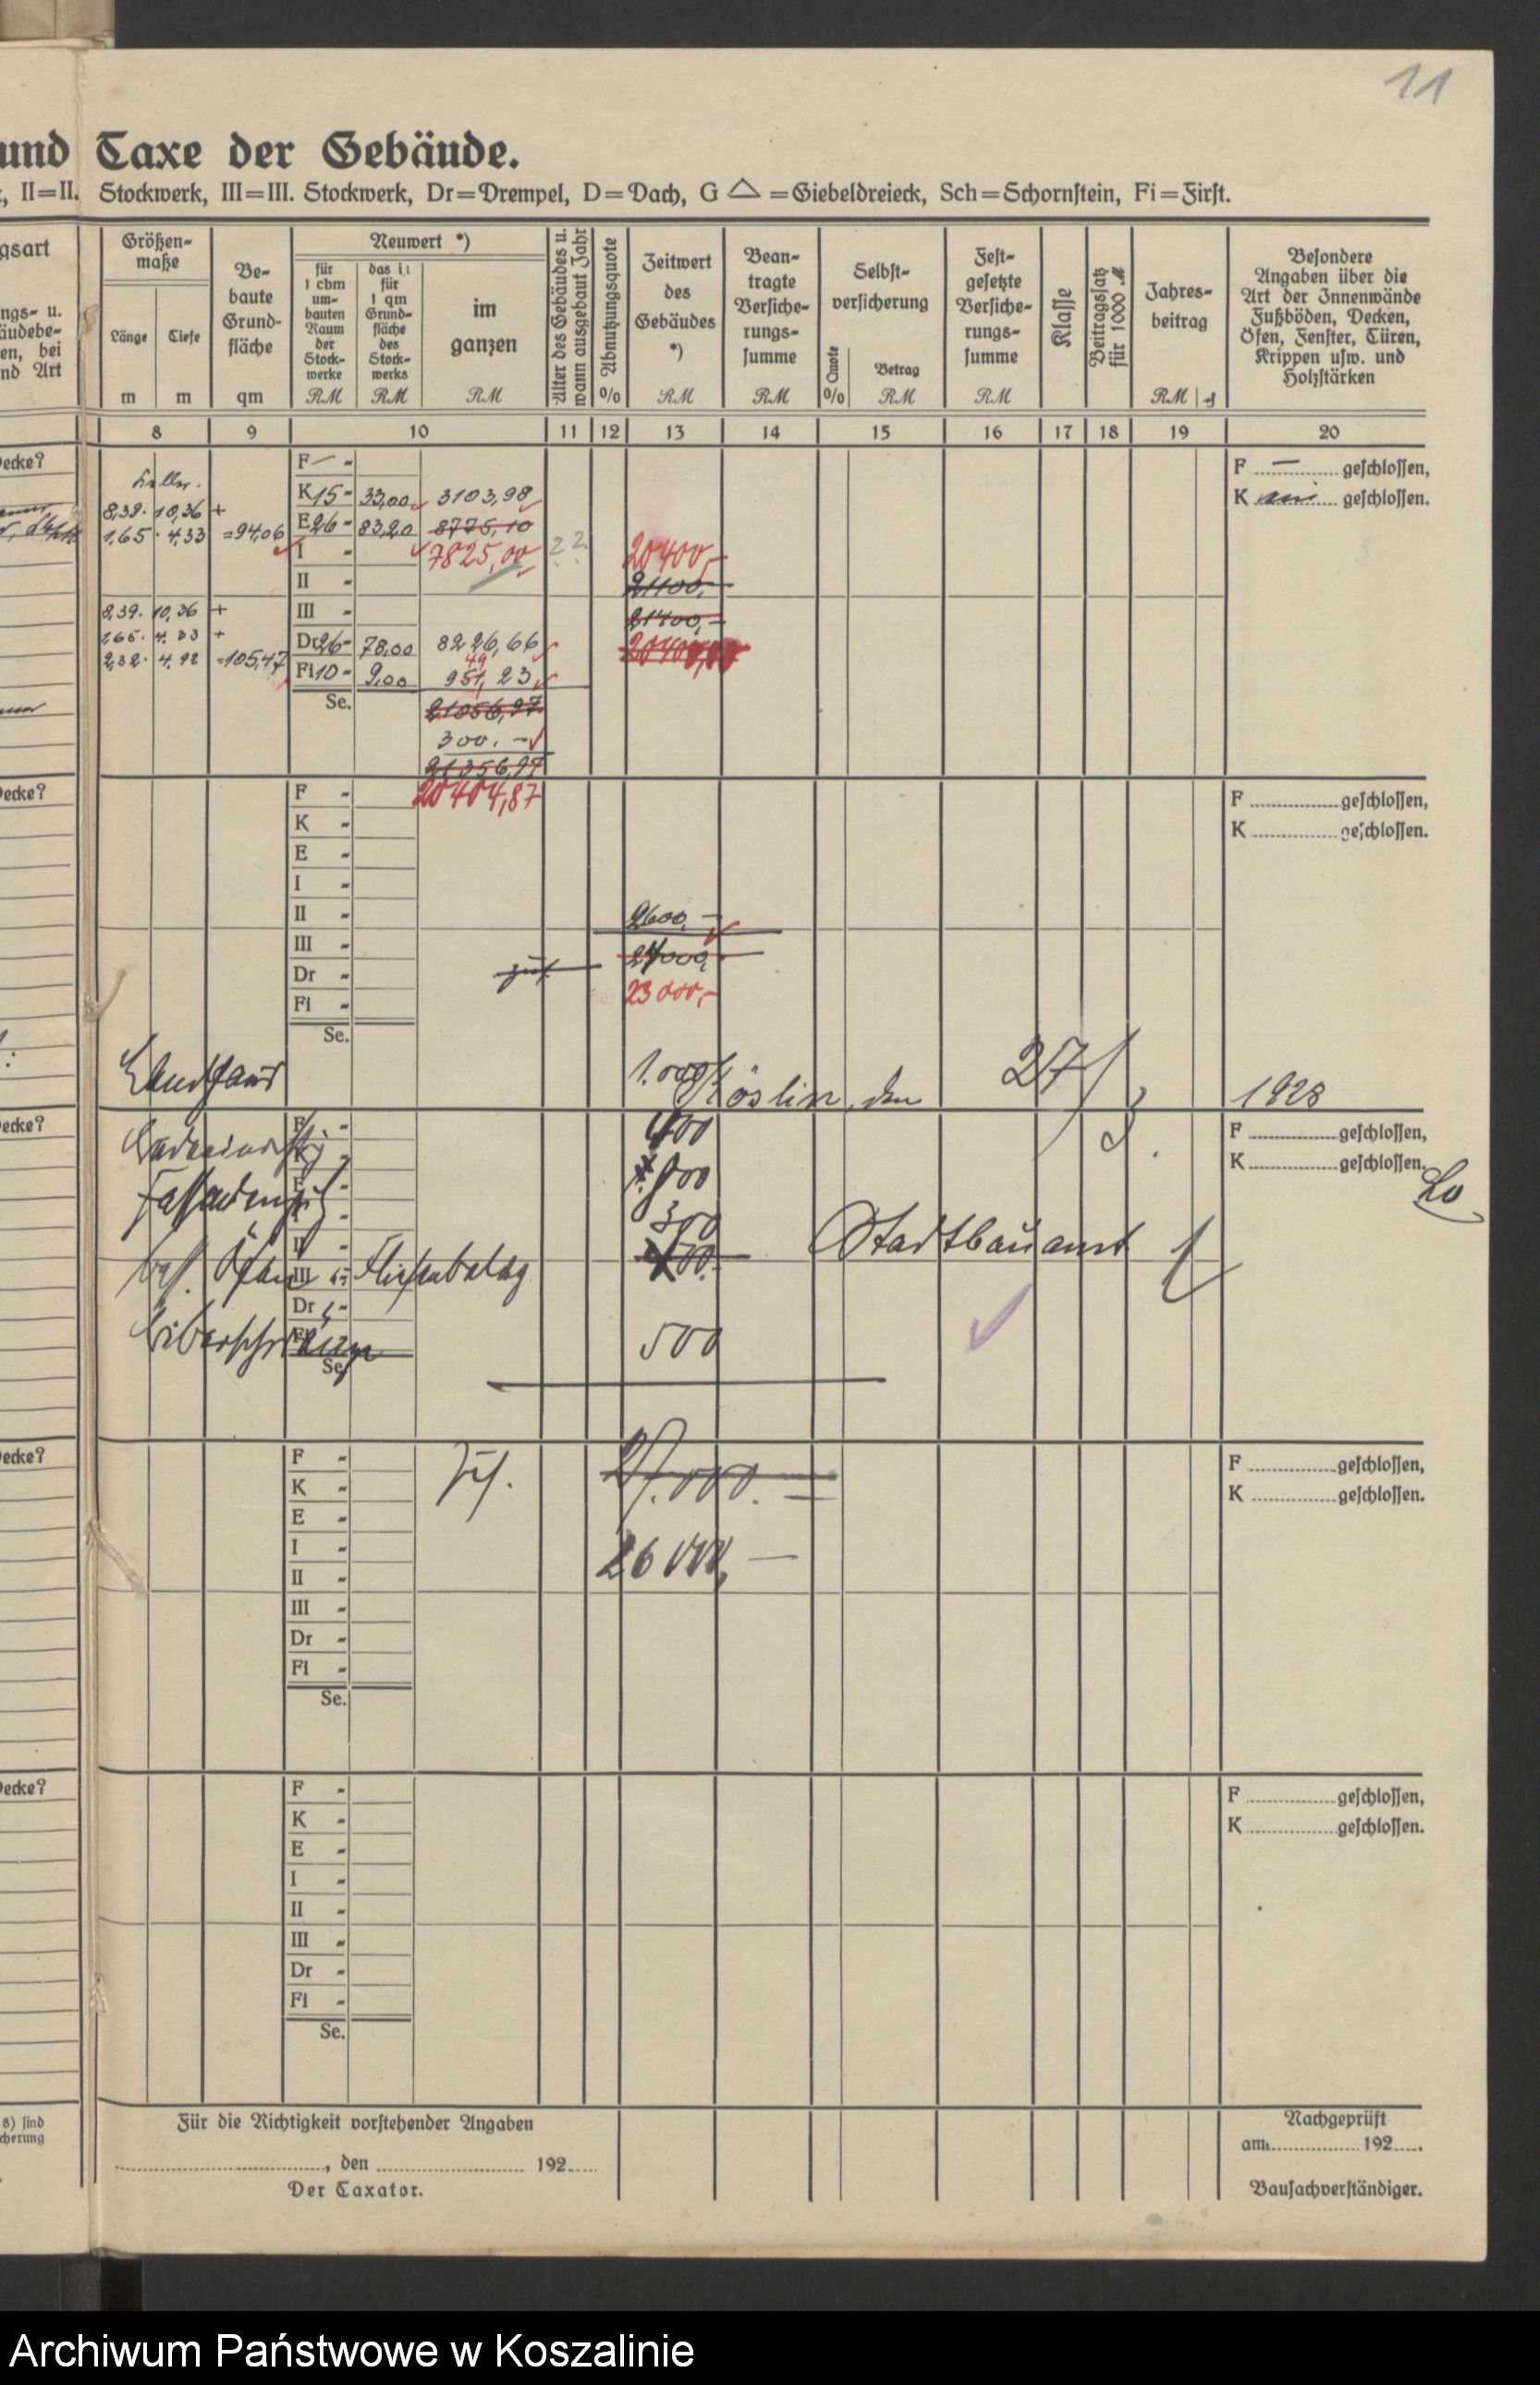 11
und Taxe der Gebäude.
, II=II. Stockwerk, III=III. Stockwerk, Dr=Drempel, D=Dach, G △ =Giebeldreieck, Sch=Schornſtein, Fi=Firſt.
gsart
ngs- u.
äudebe-
en, bei
nd Art
Größen-
maße
Länge
m
Tiefe
m
Be-
baute
Grund-
fläche
qm
Neuwert *)
für
1 cbm
um-
bauten
Raum
der
Stock-
werke
RM
das iſt
für
1 qm
Grund-
fläche
des
Stock-
werks
RM
im
ganzen
RM
Alter des Gebäudes u.
wann ausgebaut Jahr
Abnutzungsquote
%
Zeitwert
des
Gebäudes
*)
RM
Bean-
tragte
Verſiche-
rungs-
ſumme
RM
Selbſt-
verſicherung
Quote
%
Betrag
RM
Feſt-
geſetzte
Verſiche-
rungs-
ſumme
RM
Klaſſe
Beitragsſatz
für 1000 M
Jahres-
beitrag
RM
Beſondere
Angaben über die
Art der Innenwände
Fußböden, Decken,
Öfen, Fenſter, Türen,
Krippen uſw. und
Holzſtärken
8 9 10 11 12 13 14 15 16 17 18 19 20
Decke?
F — -
F — geſchloſſen,
Keller.
K 15 - 33,00 3103,98
K geſchloſſen.
8,39 · 10,36 +
E 26 - 83,20 8775,10
1,65 · 4,33 = 94,06
I - 7825,00 22 20400,-
II - 21100,-
8,39 · 10,36 +
III - 21400,-
4.33 +
Dr 26 - 78,00 8226,66
2,32 · 4.92 = 105,47
Fi 10 - 9,00 951,23
49
Se. 21056,97
300.-
21356,97
20404,87
Decke?
F -
K -
E -
I -
II -
III -
Dr -
Fi -
Se.
F ........ geſchloſſen,
K ........ geſchloſſen.
2600,-
24000,
23000,-
1.000
Köslin, den 27/ 1928
Decke?
F ........ geſchloſſen,
K ........ geſchloſſen.
400
800
300
Stadtbauamt
500
Decke?
F -
K -
E -
I -
II -
III -
Dr -
Fi -
Se.
27.000.
26000,—
F ........ geſchloſſen,
K ........ geſchloſſen.
Decke?
F -
K -
E -
I -
II -
III -
Dr -
Fi -
Se.
F ........ geſchloſſen,
K ........ geſchloſſen.
8) ſind
cherung
Für die Richtigkeit vorſtehender Angaben
........, den ........ 192.....
Der Taxator.
Nachgeprüft
am ........ 192.....
Bauſachverſtändiger.
Archiwum Państwowe w Koszalinie